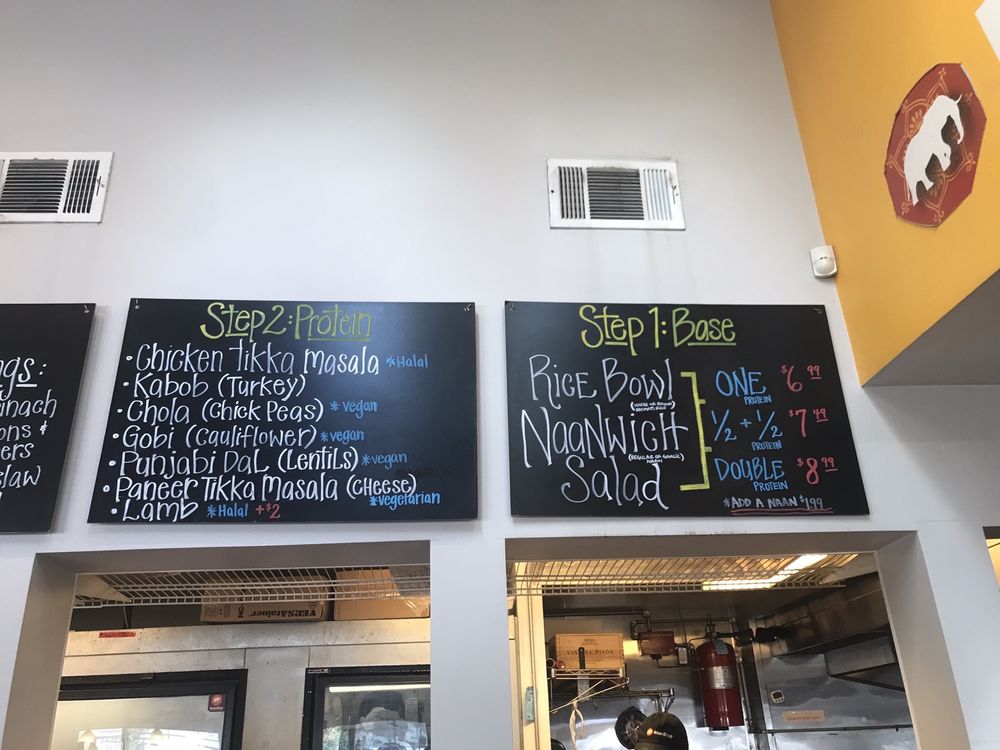 gs:
anach
ons +
ers
slaw
Step 2: Protein
• Chicken Tikka Masala *Halal
• Kabob (Turkey)
• Chola (Chick Peas) *vegan
• Gobi (Cauliflower) *vegan
• Punjabi Dal (Lentils) *vegan
• Paneer Tikka Masala (Cheese)
*vegetarian
• Lamb *Halal +$2
Step 1: Base
Rice Bowl
NaaNwich
(Regular or Garlic)
Naan
Salad
ONE PROTEIN $6.99
1/2 + 1/2 PROTEIN $7.49
DOUBLE PROTEIN $8.99
*ADD A NAAN $1.99
VERSAtainer